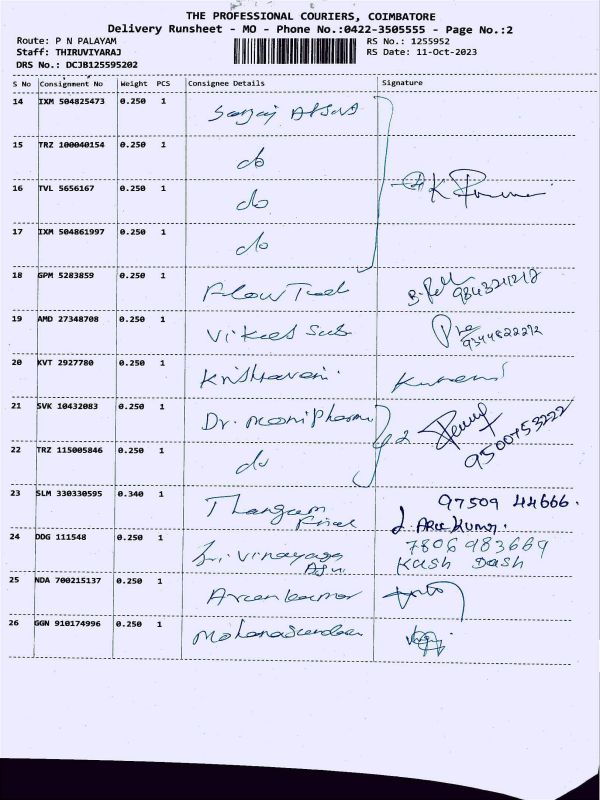 THE PROFESSIONAL COURIERS, COIMBATORE
Delivery Runsheet - MO - Phone No.:0422-3505555 - Page No.:2
Route: P N PALAYAM
RS No.: 1255952
Staff: THIRUVIYARAJ
RS Date: 11-Oct-2023
DRS No.: DCJB125595202
S No Consignment No Weight PCS Consignee Details Signature
14 IXM 504825473 0.250 1
Sanjay
15 TRZ 100040154 0.250 1
do
16 TVL 5656167 0.250 1
do
17 IXM 504861997 0.250 1
do
18 GPM 5283859 0.250 1
Flow
19 AMD 27348708 0.250 1
Vikas Sub
9344822272
20 KVT 2927780 0.250 1
Krishnaveni
21 SVK 10432083 0.250 1
Dr. Mani Pharma
9500753222
22 TRZ 115005846 0.250 1
do
23 SLM 330330595 0.340 1
Thangam
97509 44666.
J. Arun Kumar.
24 DDG 111548 0.250 1
Sri Vinayaga
7806983669
Kash Dash
25 NDA 700215137 0.250 1
Arunkumar
26 GGN 910174996 0.250 1
Mohanasundaram